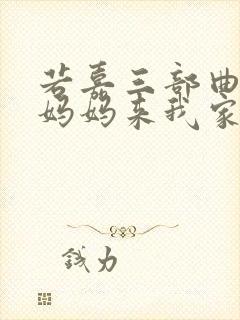 若嘉三部曲
妈妈来我家
钱力